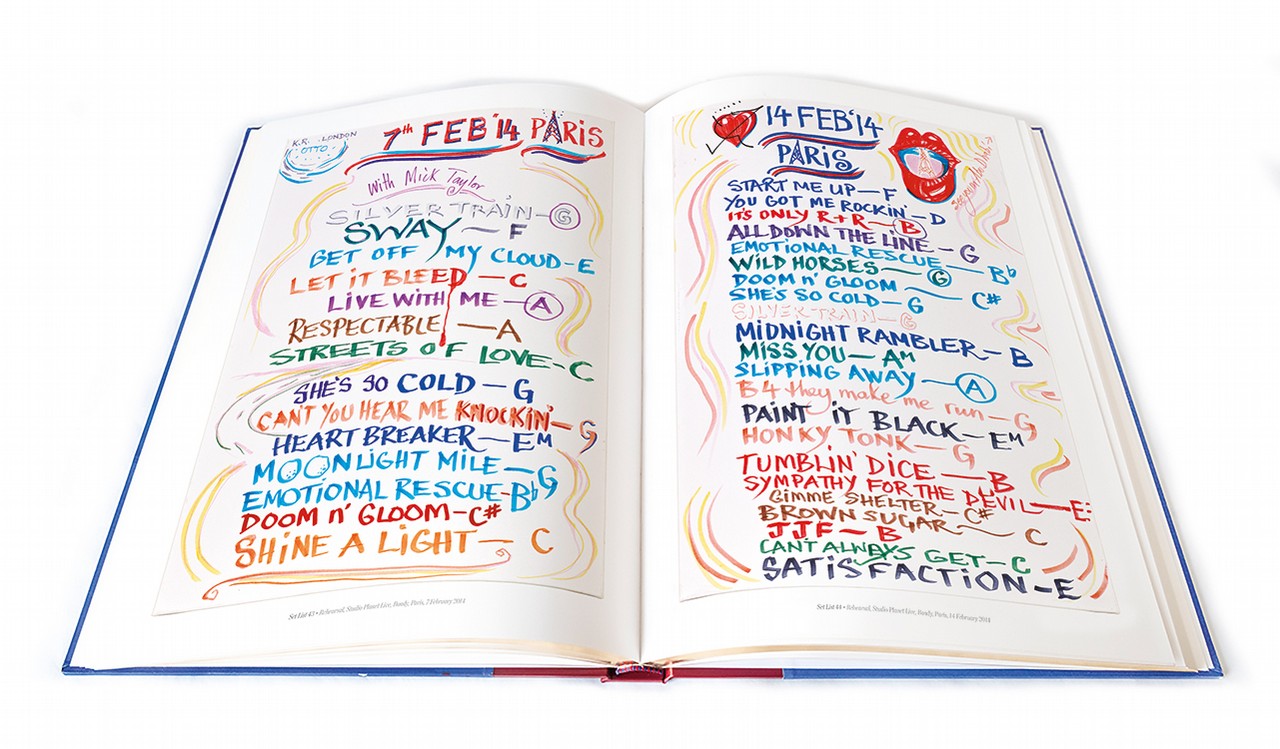 K.R. LONDON
OTTO
7th FEB '14 PARIS
with Mick Taylor
SILVER TRAIN - G
SWAY - F
GET OFF MY CLOUD - E
LET IT BLEED - C
LIVE WITH ME - A
RESPECTABLE - A
STREETS OF LOVE - C
SHE'S SO COLD - G
CANT YOU HEAR ME KNOCKIN' - G
HEART BREAKER - EM
MOONLIGHT MILE - G
EMOTIONAL RESCUE - Bb
DOOM n' GLOOM - C#
SHINE A LIGHT - C
Set List 43 • Rehearsal, Studio Planet Live, Bondy, Paris, 7 February 2014
14 FEB '14
PARIS
START ME UP - F
YOU GOT ME ROCKIN' - D
IT'S ONLY R+R - B
ALL DOWN THE LINE - G
EMOTIONAL RESCUE - Bb
WILD HORSES - G
DOOM n' GLOOM - C#
SHE'S SO COLD - G
SILVER TRAIN - G
MIDNIGHT RAMBLER - B
MISS YOU - AM
SLIPPING AWAY - A
B4 they make me run - G
PAINT IT BLACK - EM
HONKY TONK - G
TUMBLIN' DICE - B
SYMPATHY FOR THE DEVIL - E
GIMME SHELTER - C#
BROWN SUGAR - C
JJF - B
CANT ALWAYS GET - C
SATISFACTION - E
Set List 44 • Rehearsal, Studio Planet Live, Bondy, Paris, 14 February 2014